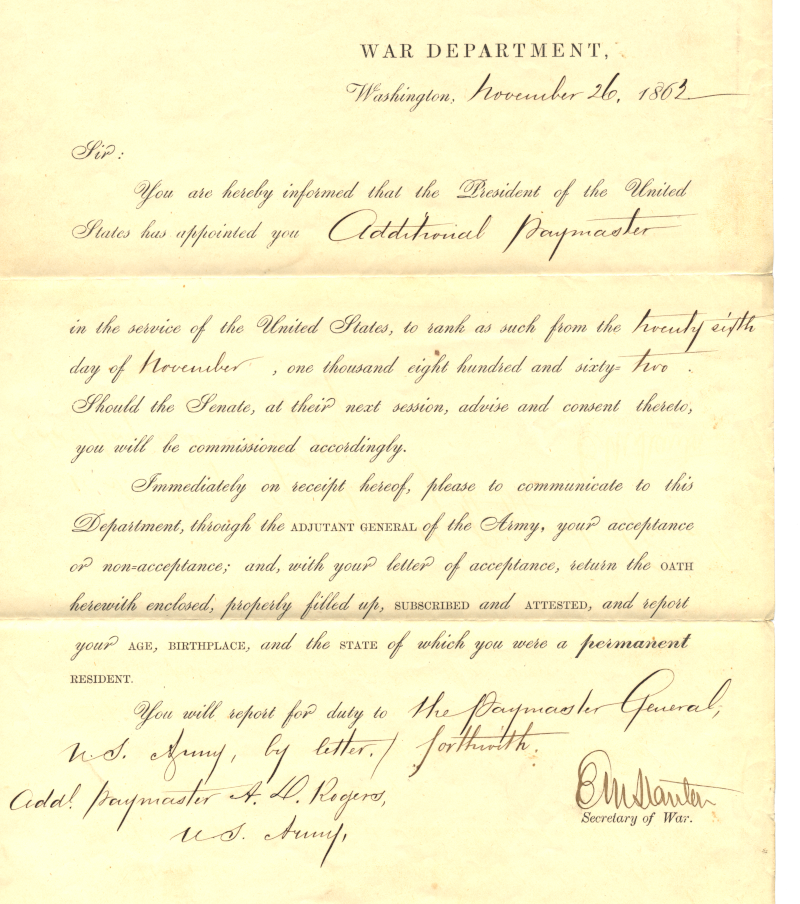 WAR DEPARTMENT,
Washington, November 26, 1862
Sir:
You are hereby informed that the President of the United
States has appointed you Additional Paymaster
in the service of the United States, to rank as such from the twenty sixth
day of November , one thousand eight hundred and sixty= two .
Should the Senate, at their next session, advise and consent thereto,
you will be commissioned accordingly.
Immediately on receipt hereof, please to communicate to this
Department, through the ADJUTANT GENERAL of the Army, your acceptance
or non=acceptance; and, with your letter of acceptance, return the OATH
herewith enclosed, properly filled up, SUBSCRIBED and ATTESTED, and report
your AGE, BIRTHPLACE, and the STATE of which you were a permanent
RESIDENT.
You will report for duty to the Paymaster General,
U.S. Army, by letter / forthwith.
Addl. Paymaster A. D. Rogers,
U.S. Army,
E M Stanton
Secretary of War.